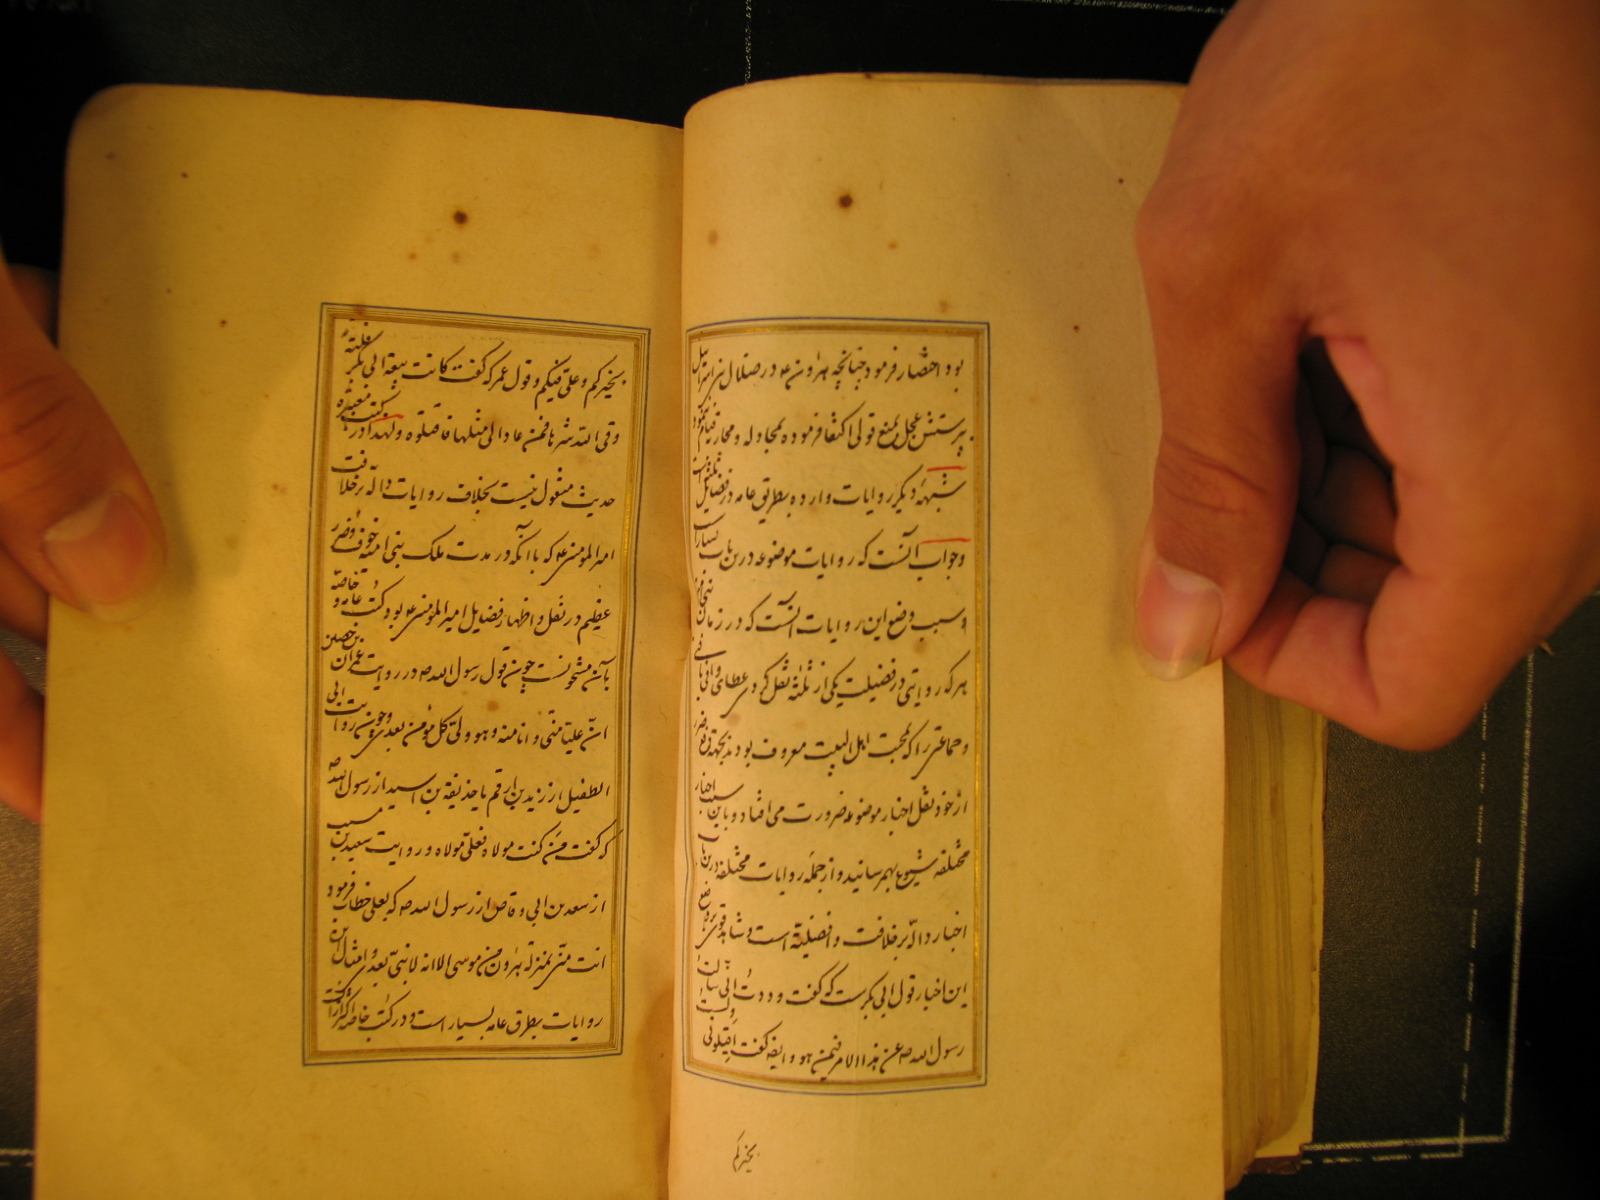 بود اختصار فرمود چنانچه هرون ع در ضلال بنی اسرائیل
پرستش عجل بمنع قولی اکتفا فرموده بمجادله و محاربه قیام ننمود
شبههٔ دیگر روایات وارده بطریق عامه در فضایل ثلثه است
وجواب آنست که روایات موضوعه درین باب بسیار است
وسبب وضع این روایات آنست که در زمان بنی امیه
هرکه روایتی در فضیلت یکی از ثلثه نقل کردی عطای وافی یافتی
وجماعتی را که بمحبت اهل البیت معروف بودند بجهة دفع ضرر
از خود نقل اخبار موضوعه ضرورت می افتاد و باین سبب اخبار
مختلفه شیوع بهم رسانید و از جملهٔ روایات مختلفه درین باب
اخبار داله بر خلافت و افضلیة است و شاهد قوی بر وضع
این اخبار قول ابی بکرست که گفت وددت انی سألت
رسول الله ص عن هذا الامر فیمن هو و ایضا گفت اقیلونی ولست
بخیرکم
بخیرکم وعلی فیکم وقول عمر که گفت کانت بیعة ابی بکر فلتة
وقی الله شرها فمن عاد الی مثلها فاقتلوه ولهذا در کتب معتبره
حدیث منقول نیست بخلاف روایات داله بر خلافت
امیرالمؤمنین ع که با آنکه در مدت ملک بنی امیه خوف و ضرر
عظیم در نقل و اظهار فضایل امیرالمؤمنین ع بود کتب عامه و خاصه
بآن مشحونست چون قول رسول الله ص در روایت عمران بن حصین
ان علیا منی و انا منه وهو ولی کل مؤمن بعدی وچون روایت ابی
الطفیل از زید بن ارقم یا حذیفة بن اسید از رسول الله ص
که گفت من کنت مولاه فعلی مولاه و روایت سعید بن مسیب
از سعد بن ابی وقاص از رسول الله ص که بعلی خطاب فرمود
انت منی بمنزلة هرون من موسی الا انه لا نبی بعدی و امثال این
روایات بطرق عامه بسیار است و در کتب خاصه